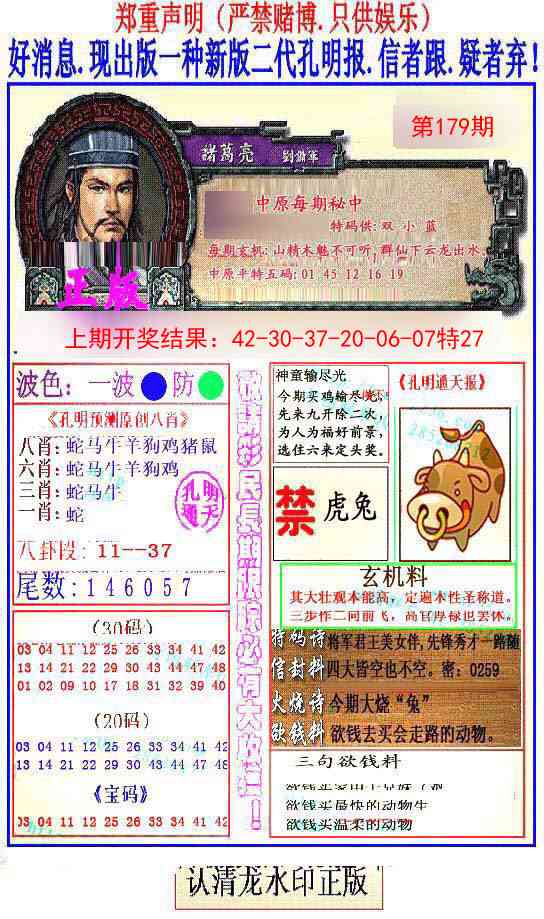 郑重声明（严禁赌博.只供娱乐）
好消息.现出版一种新版二代孔明报.信者跟.疑者弃!
第179期
諸葛亮
中原每期秘中
特码供: 双 小 蓝
每期玄机: 山精木魅不可听,群仙下云龙出水
中原平特五码: 01 45 12 16 19
正版
上期开奖结果：42-30-37-20-06-07特27
波色：一波 防
《孔明预测原创八肖》
八肖: 蛇马牛羊狗鸡猪鼠
六肖: 蛇马牛羊狗鸡
三肖: 蛇马牛
一肖: 蛇
孔明
通天
八卦段: 11--37
尾数:146057
(30码)
03 04 11 12 25 26 33 34 41 42
13 14 21 22 29 30 43 44 47 48
01 02 09 10 17 18 31 32 39 40
(20码)
03 04 11 12 25 26 33 34 41 42
13 14 21 22 29 30 43 44 47 48
《宝码》
03 04 11 12 25 26 33 34 41 42
神童输尽光
今期买鸡输尽光,
先来九开除二次,
为人为福好前景,
选住六来定头奖。
《孔明通天报》
禁 虎兔
玄机料
其大壮观本能高，定遍本性圣称道。
三步作二向前飞，高官厚禄也罢休。
特码诗 将军君王美女伴,先锋秀才一路随
信封料 四大皆空也不空。密：0259
火烧诗 今期大烧“兔”
欲钱料 欲钱去买会走路的动物。
三句欲钱料
欲钱买最快的动物生
欲钱买温柔的动物
认清龙水印正版